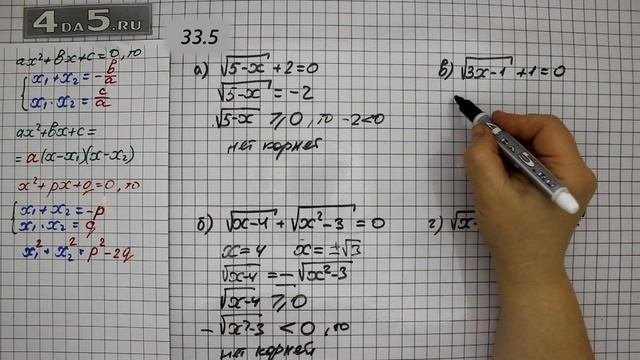 4DA5.RU
ax²+bx+c=0, то
x₁+x₂=-b/a
x₁·x₂=c/a
ax²+bx+c=
=a(x-x₁)(x-x₂)
x²+px+q=0, то
x₁+x₂=-p
x₁·x₂=q
x₁²+x₂²=p²-2q
33.5
а) √(5-x)+2=0
√(5-x)=-2
√(5-x) ⩾0, то -2<0
нет корней
б) √(x-4)+√(x²-3)=0
x=4 x=±√3
√(x-4)=-√(x²-3)
√(x-4) ⩾0
-√(x²-3)<0, то
нет корней
в) √(3x-1)+1=0
4DA5.RU
г) √x-